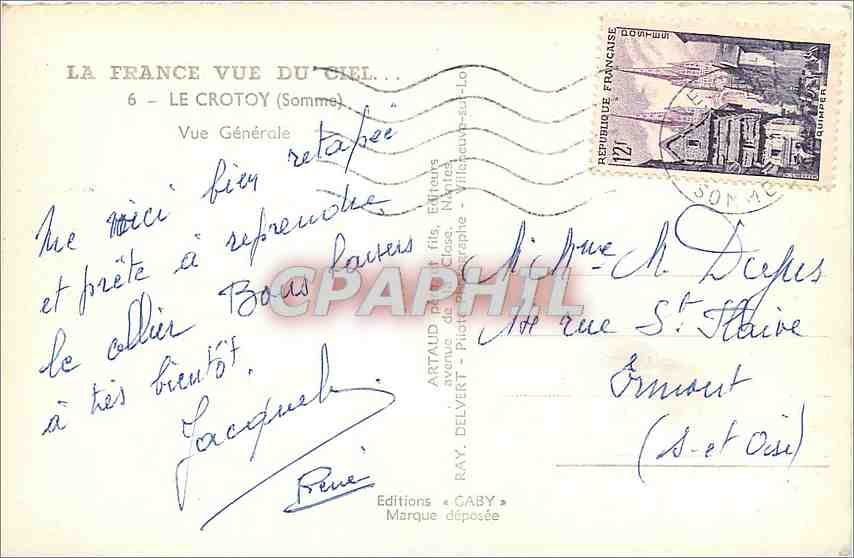 LA FRANCE VUE DU CIEL...
6 - LE CROTOY (Somme)
Vue Générale
Me voici bien retapée
et prête à reprendre
le collier Bons baisers
à très bientôt.
Jacqueline
René
ARTAUD père et fils, Editeurs
avenue de la Close, Nantes
RAY. DELVERT - Pilote Photographe - Villeneuve-sur-Lot
Editions « GABY »
Marque déposée
RÉPUBLIQUE FRANÇAISE
POSTES
12F
QUIMPER
SOMME
CPAPHIL
M. Mme M. Dupuis
rue St Flaive
Ermont
(S-et Oise)